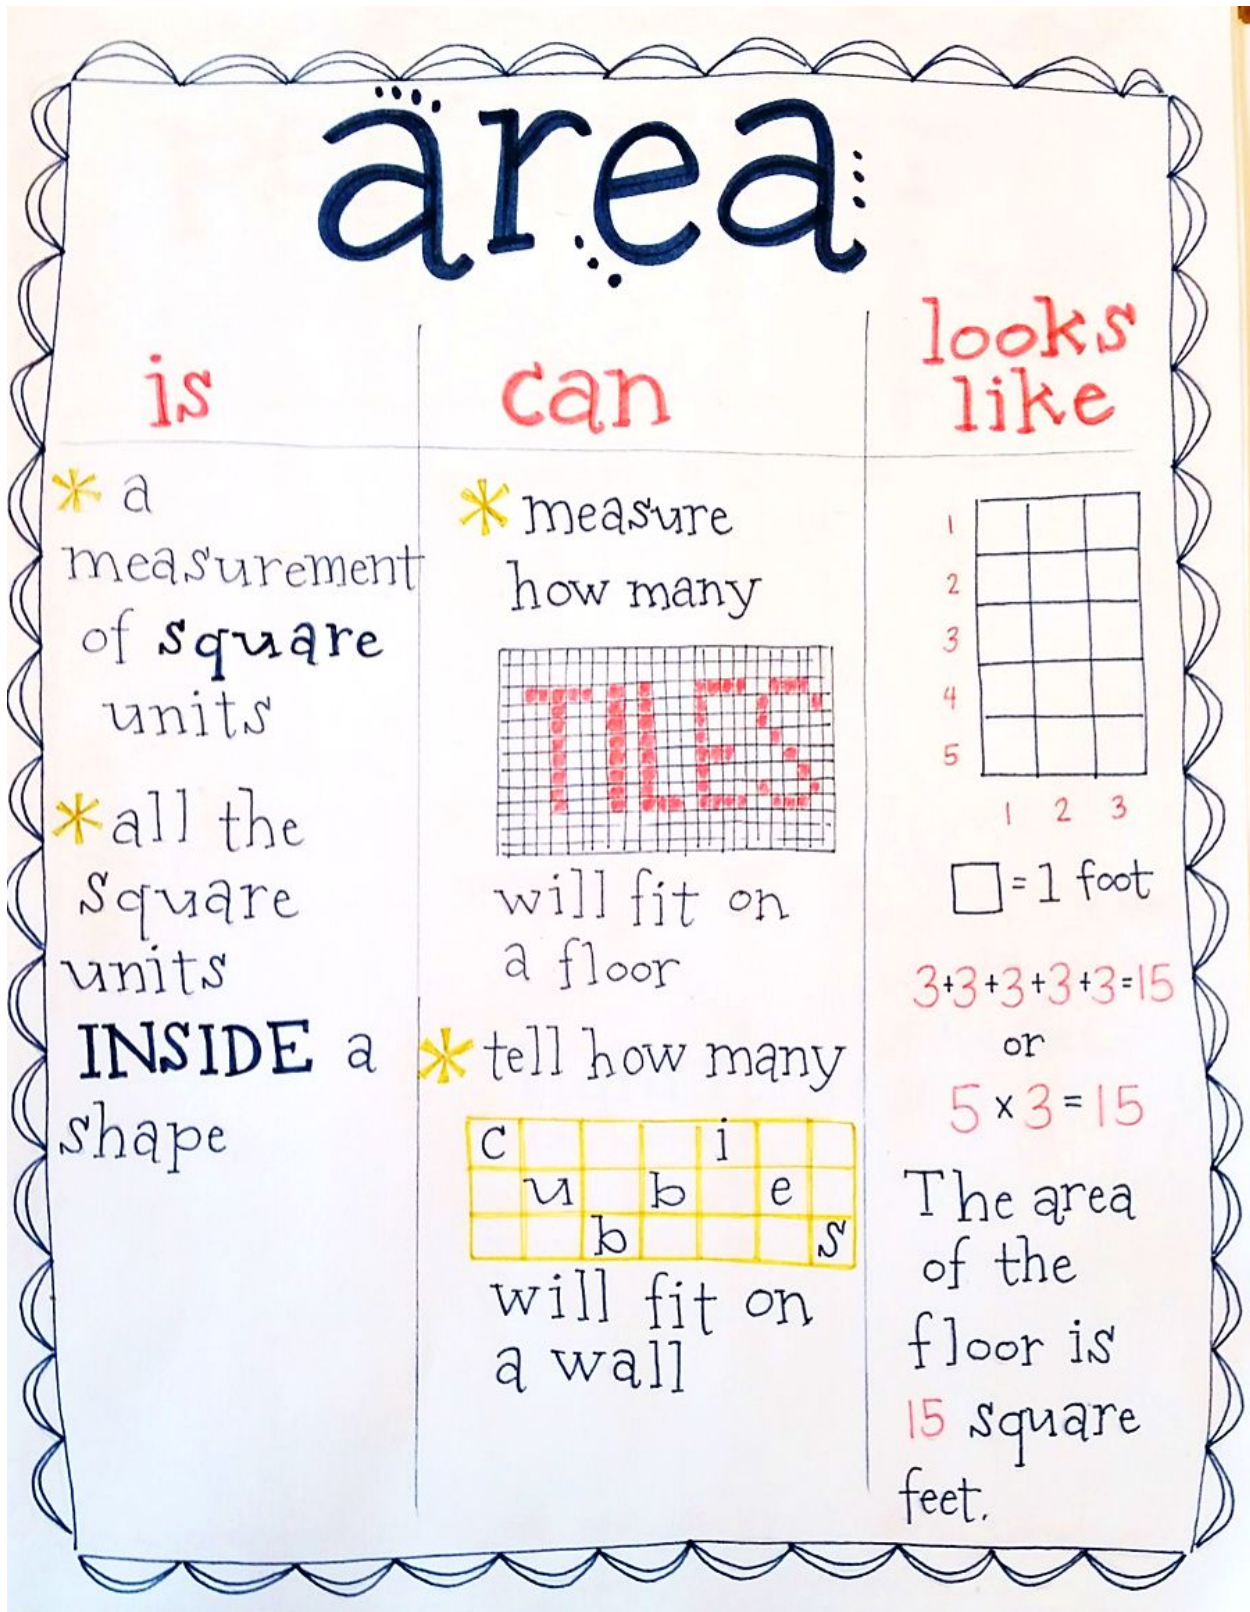 area
is
can
looks
like
* a
measurement
of square
units
* all the
square
units
INSIDE a
shape
* measure
how many
TILES
will fit on
a floor
* tell how many
c i
u b e
b s
will fit on
a wall
1
2
3
4
5
1 2 3
= 1 foot
3+3+3+3+3=15
or
5 x 3 = 15
The area
of the
floor is
15 square
feet.